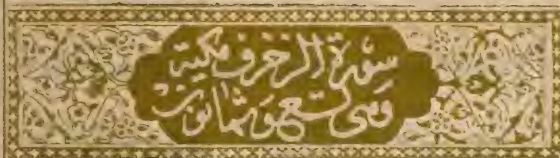 سورة الزخرف مكية
وهي تسع وثمانون